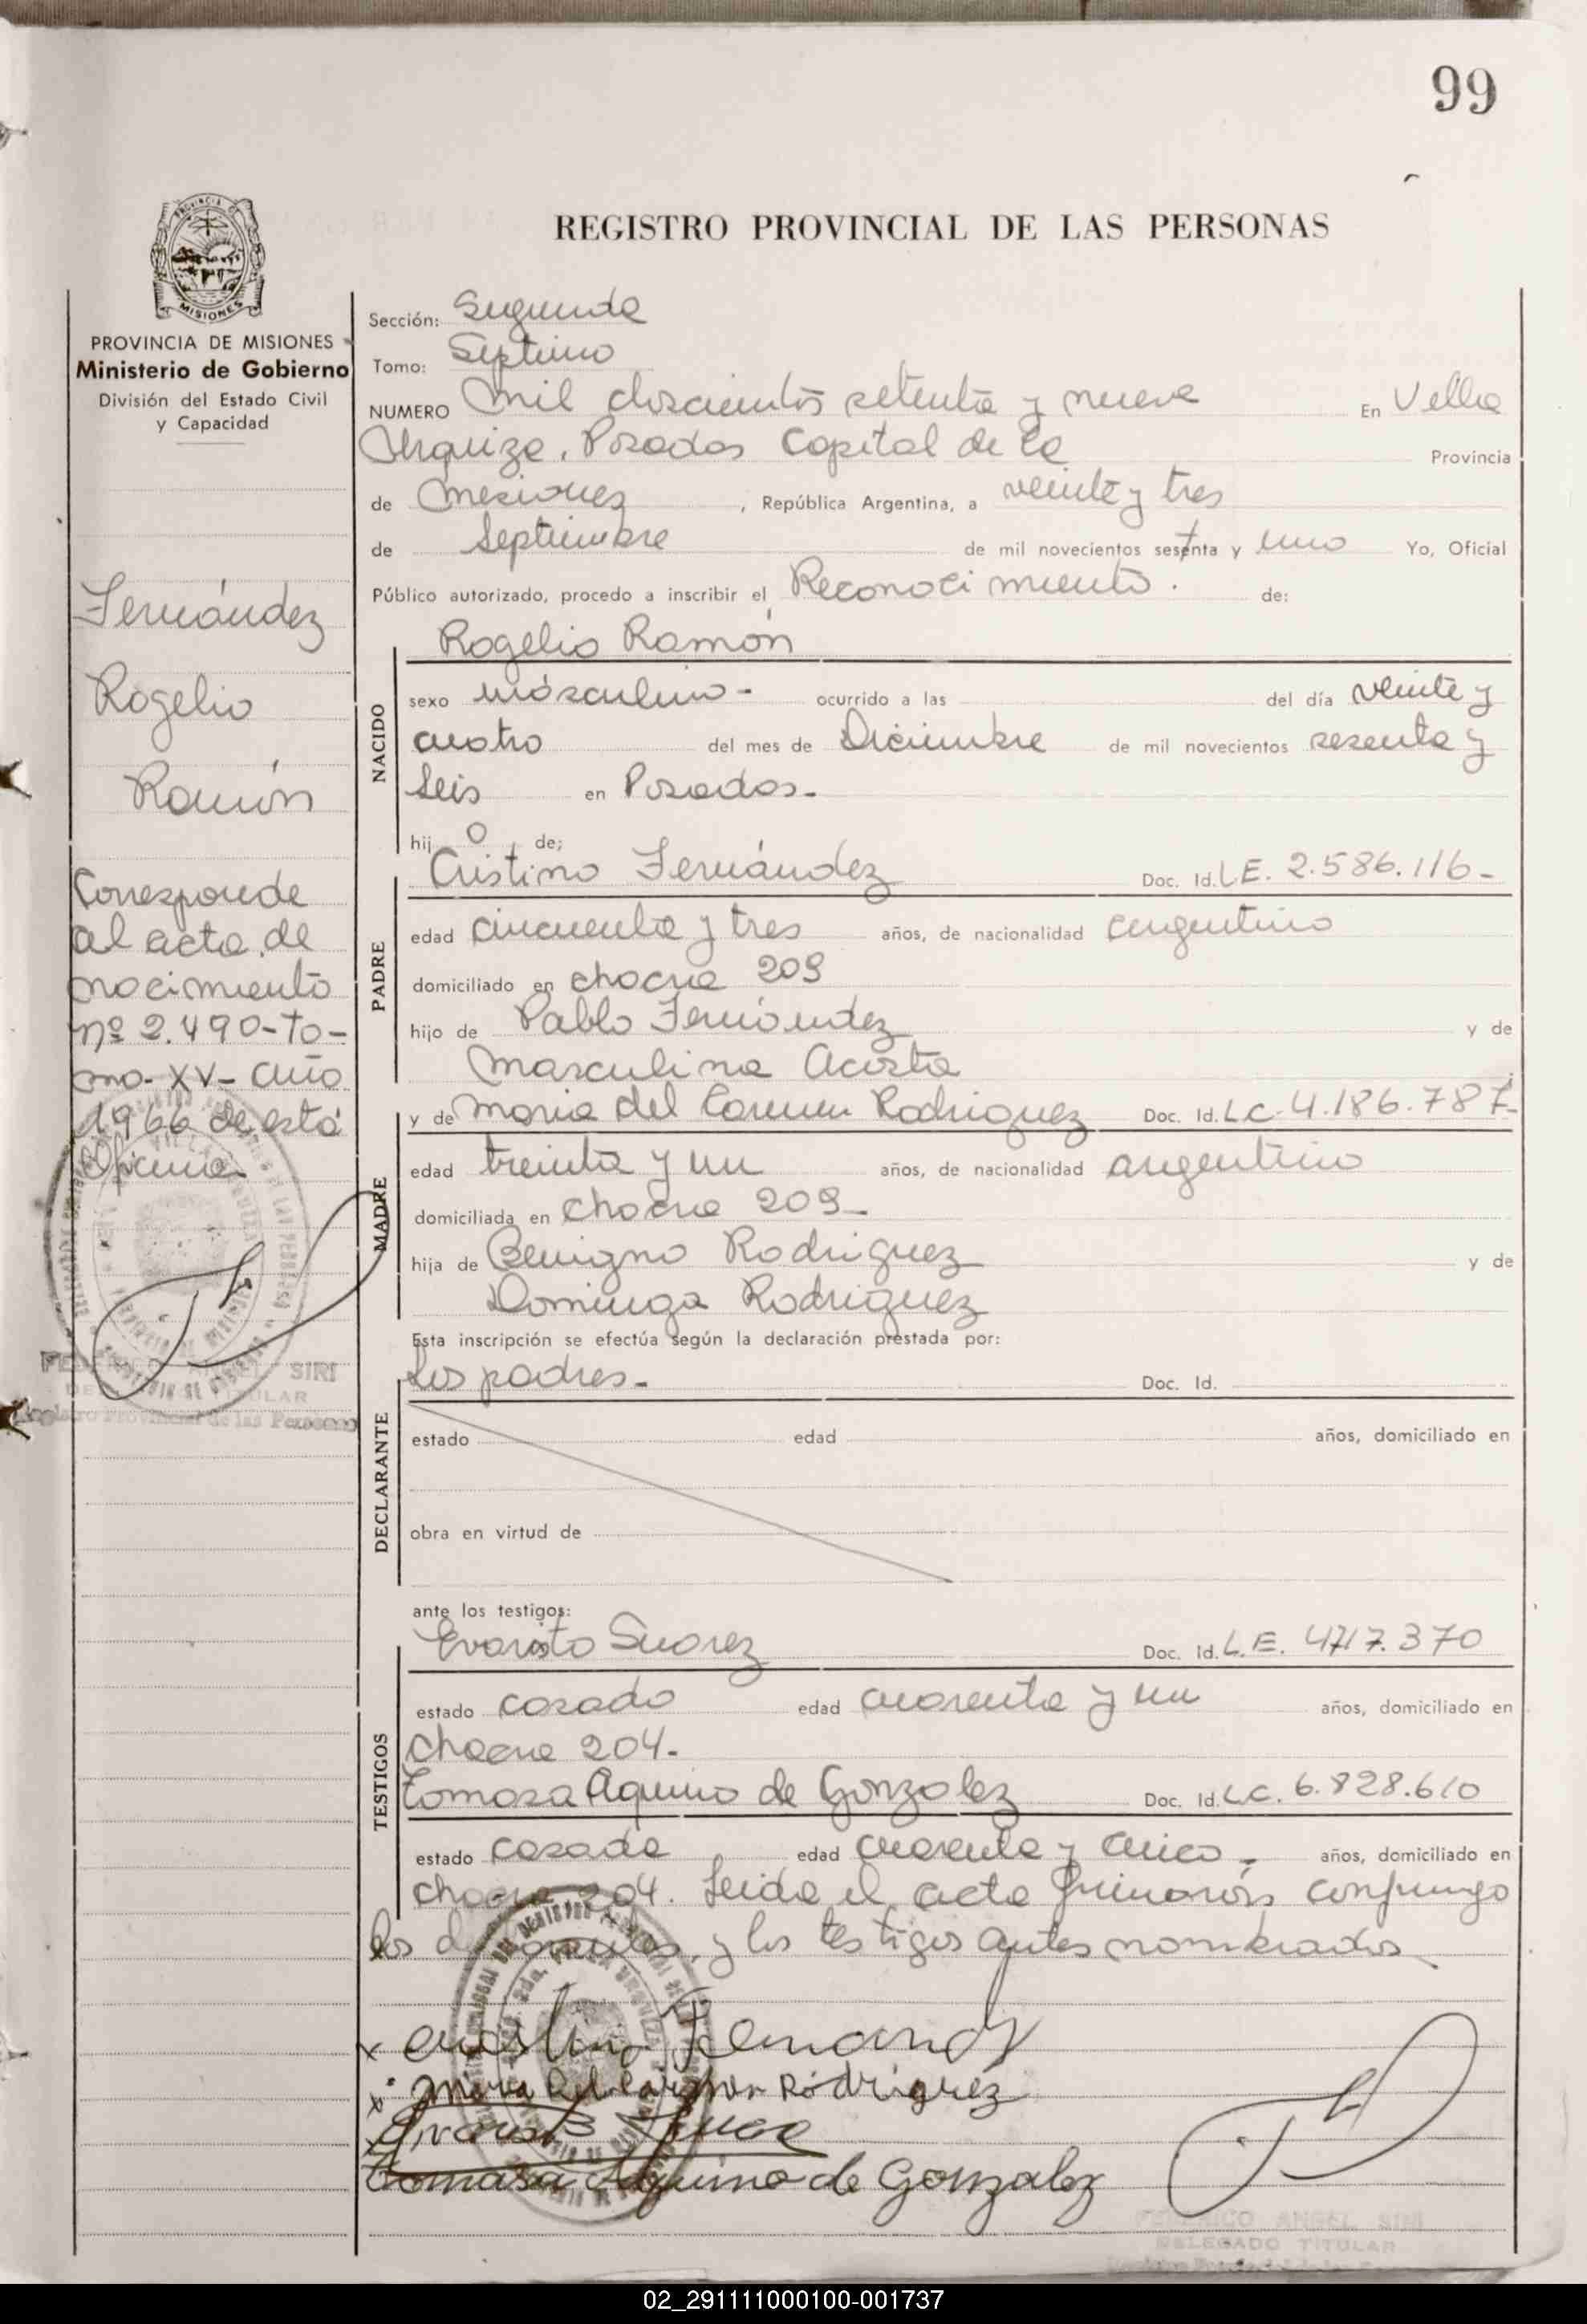 99
REGISTRO PROVINCIAL DE LAS PERSONAS
PROVINCIA
MISIONES
PROVINCIA DE MISIONES
Ministerio de Gobierno
División del Estado Civil
y Capacidad
Fernández
Rogelio
Ramón
Corresponde
al acta de
nacimiento
nº 2.490-To-
mo-XV-año
1966 de esta
Oficina
SIRI
TITULAR
Registro Provincial de las Personas
Sección: Segunda
Tomo: Septimo
NUMERO mil doscientos setenta y nueve En Villa
Urquiza, Posadas Capital de la Provincia
de Misiones, República Argentina, a veinte y tres
de Septiembre de mil novecientos sesenta y uno Yo, Oficial
Público autorizado, procedo a inscribir el Reconocimiento. de:
Rogelio Ramón
NACIDO
sexo másculino- ocurrido a las del día veinte y
cuatro del mes de Diciembre de mil novecientos sesenta y
seis en Posadas-
hijo de;
Cristino Fernández Doc. Id. L.E. 2.586.116-
PADRE
edad cincuenta y tres años, de nacionalidad argentino
domiciliado en chacra 209
hijo de Pablo Fernández y de
Masculina Acosta
y de Maria del Carmen Rodriguez Doc. Id. L.C. 4.186.787-
MADRE
edad treinta y un años, de nacionalidad argentino
domiciliada en Chacra 209-
hija de Benigno Rodriguez y de
Dominga Rodriguez
Esta inscripción se efectúa según la declaración prestada por:
Los padres- Doc. Id.
DECLARANTE
estado edad años, domiciliado en
obra en virtud de
ante los testigos:
Evaristo Suarez Doc. Id. L.E. 4717.370
TESTIGOS
estado casado edad cuarenta y un años, domiciliado en
Chacra 204-
Tomasa Aquino de Gonzalez Doc. Id. L.C. 6.828.610
estado casada edad cuarenta y cinco- años, domiciliado en
chacra 204. Leida el acta conmigo
los y los testigos antes nombrados
x Cristino Fernandez
x Maria del Carmen Rodriguez
Tomasa Aquino de Gonzalez
FEDERICO ANGEL SIRI
DELEGADO TITULAR
02_291111000100-001737